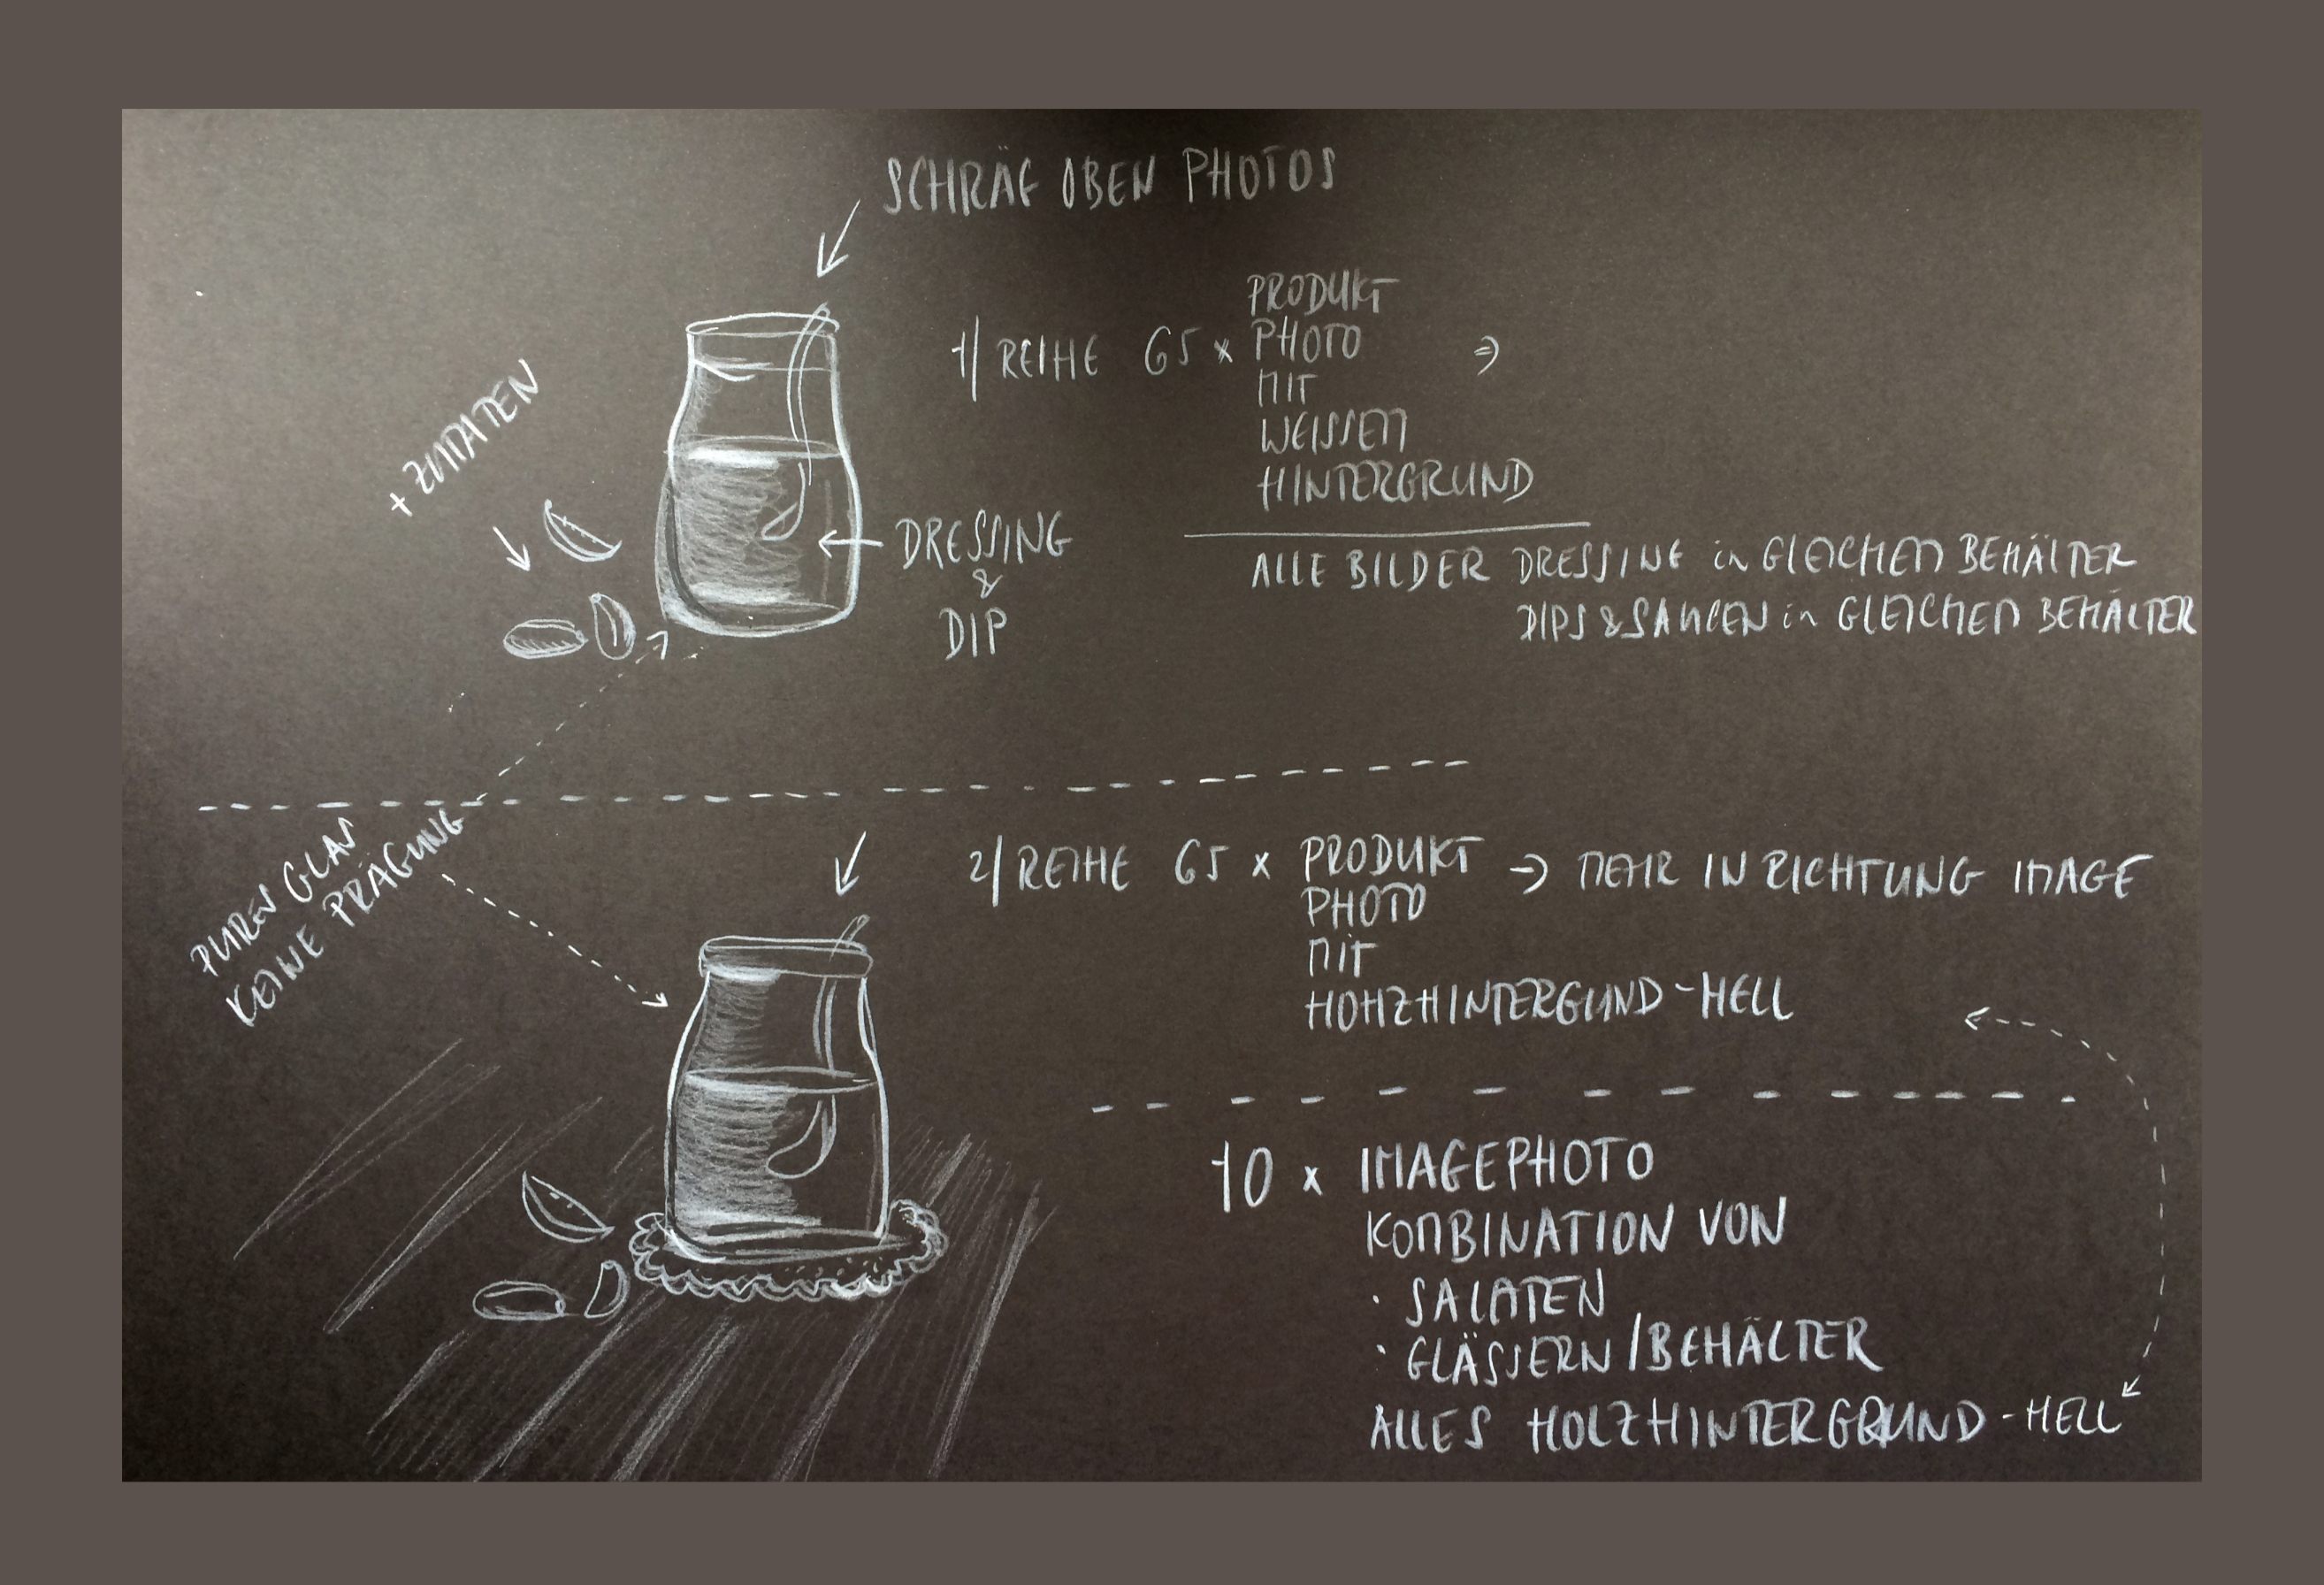 SCHRÄG OBEN PHOTOS
1/ REIHE 65 x PRODUKT
PHOTO
MIT
WEISSEM
HINTERGRUND
+ ZUTATEN
DRESSING
&
DIP
ALLE BILDER DRESSING in GLEICHEM BEHÄLTER
DIPS & SAUCEN in GLEICHEM BEHÄLTER
PURES GLAS
KEINE PRÄGUNG
2/ REIHE 65 x PRODUKT → MEHR IN RICHTUNG IMAGE
PHOTO
MIT
HOHZHINTERGUND - HELL
10 x IMAGEPHOTO
KOMBINATION VON
· SALATEN
· GLÄSSERN / BEHÄLTER
ALLES HOLZHINTERGRUND - HELL